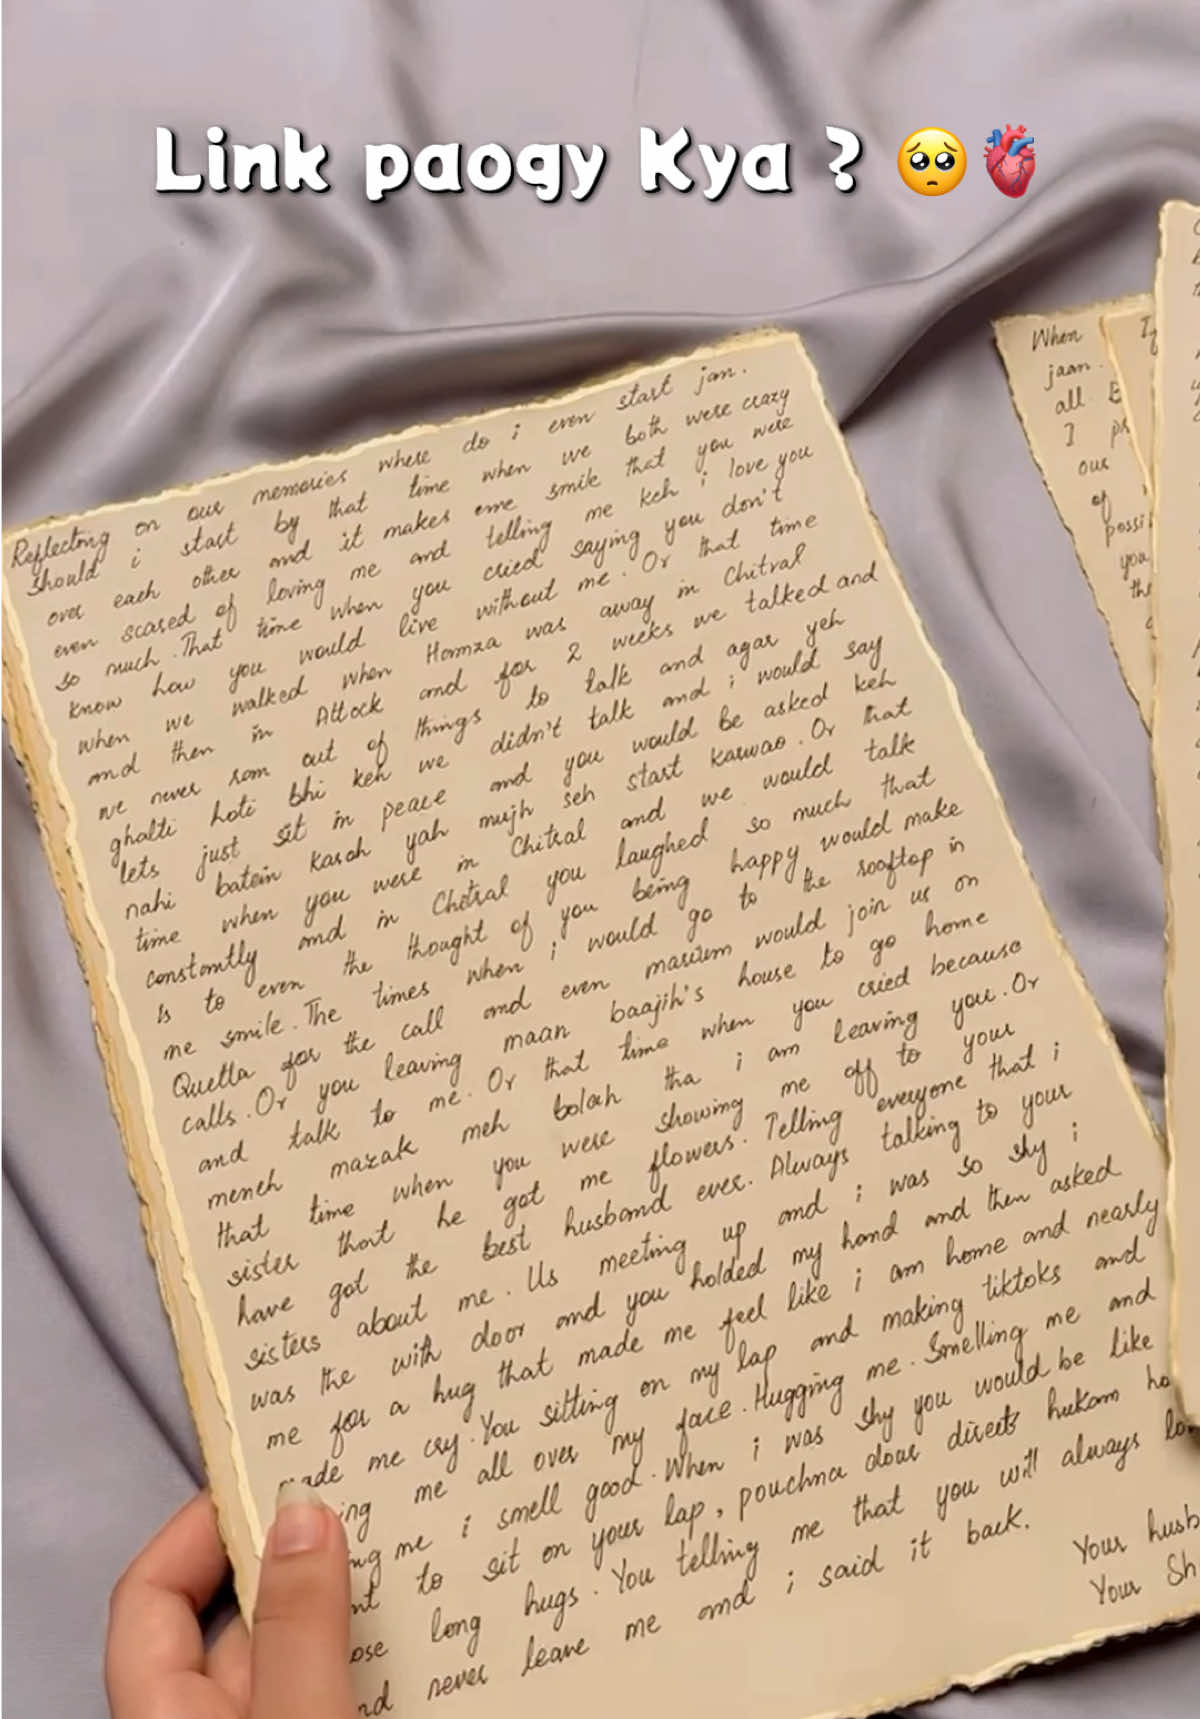 Link paogy Kya ? 🥺🫀
Reflecting on our memories where do i even start jan.
should i start by that time when we both were crazy
over each other and it makes eme smile that you were
even scared of loving me and telling me keh i love you
so much. That time when you cried saying you don't
know how you would live without me. Or that time
when we walked when Hamza was away in Chitral
and then in Attock and for 2 weeks we talked and
we never ran out of things to talk and agar yeh
ghalti hoti bhi keh we didn't talk and i would say
lets just sit in peace and you would be asked keh
nahi batein karoh yah mujh seh start karwao. Or that
time when you were in Chitral and we would talk
constantly and in Chitral you laughed so much that
is to even the thought of you being happy would make
me smile. The times when i would go to the rooftop in
Quetta for the call and even marium would join us on
calls. Or you leaving maan baajih's house to go home
and talk to me. Or that time when you cried because
meneh mazak meh bolah tha i am leaving you. Or
that time when you were showing me off to your
sister that he got me flowers. Telling everyone that i
have got the best husband ever. Always talking to your
sisters about me. Us meeting up and i was so shy i
was the with door and you holded my hand and then asked
me for a hug that made me feel like i am home and nearly
made me cry. You sitting on my lap and making tiktoks and
ing me all over my face. Hugging me. Smelling me and
ng me i smell good. When i was shy you would be like
nt to sit on your lap, pouchna dour direct hukam ho
ose long hugs. You telling me that you will always lo
nd never leave me and i said it back.
Your husb
Your Sh
When
jaan.
all. B
I pr
our
of
possi
you
the
If